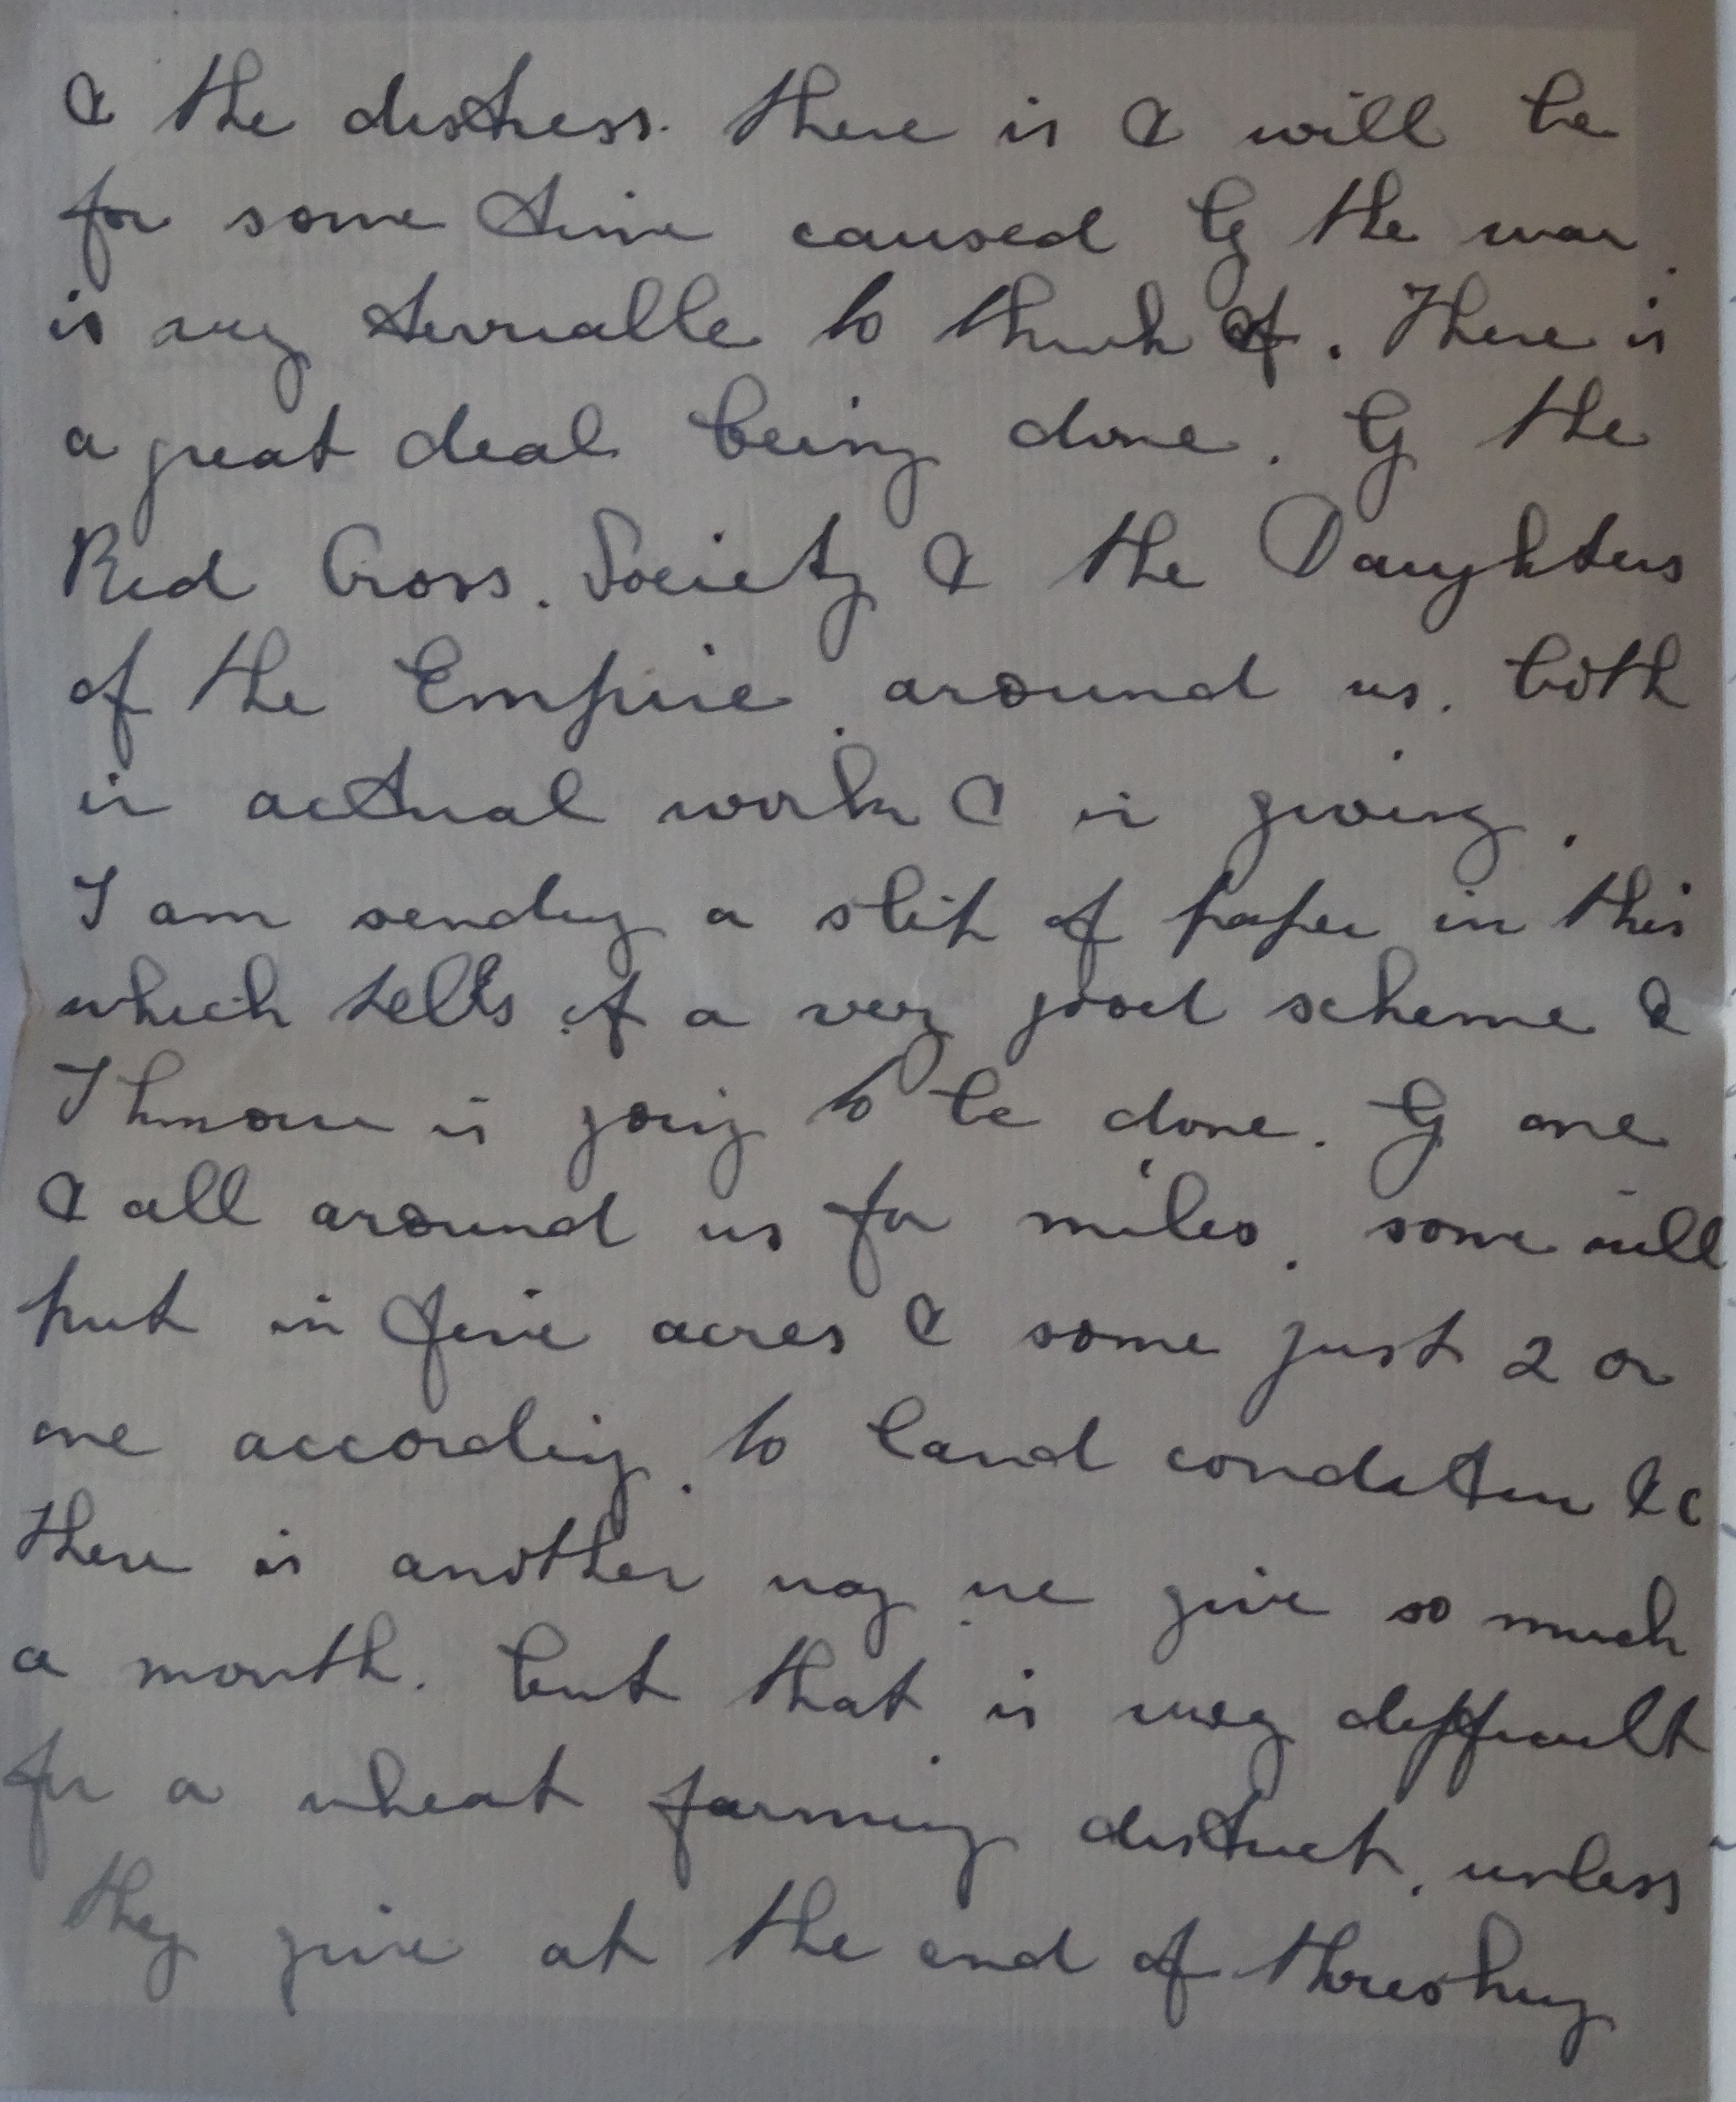 & the distress. there is & will be
for some time caused by the war.
is very terrialle to think of. There is
a great deal being done. by the
Red Cross. Society & the Daughters
of the Empire. around us. both
in actual work & in giving.
I am sending a slip of paper in this
which tells of a very good scheme &
I know is going to be done. by one
& all around us for miles. some will
put in five acres & some just 2 or
one according. to land condition &c
there is another way we give so much
a month. but that is very difficult
for a wheat farming district. unless
they give at the end of threshing